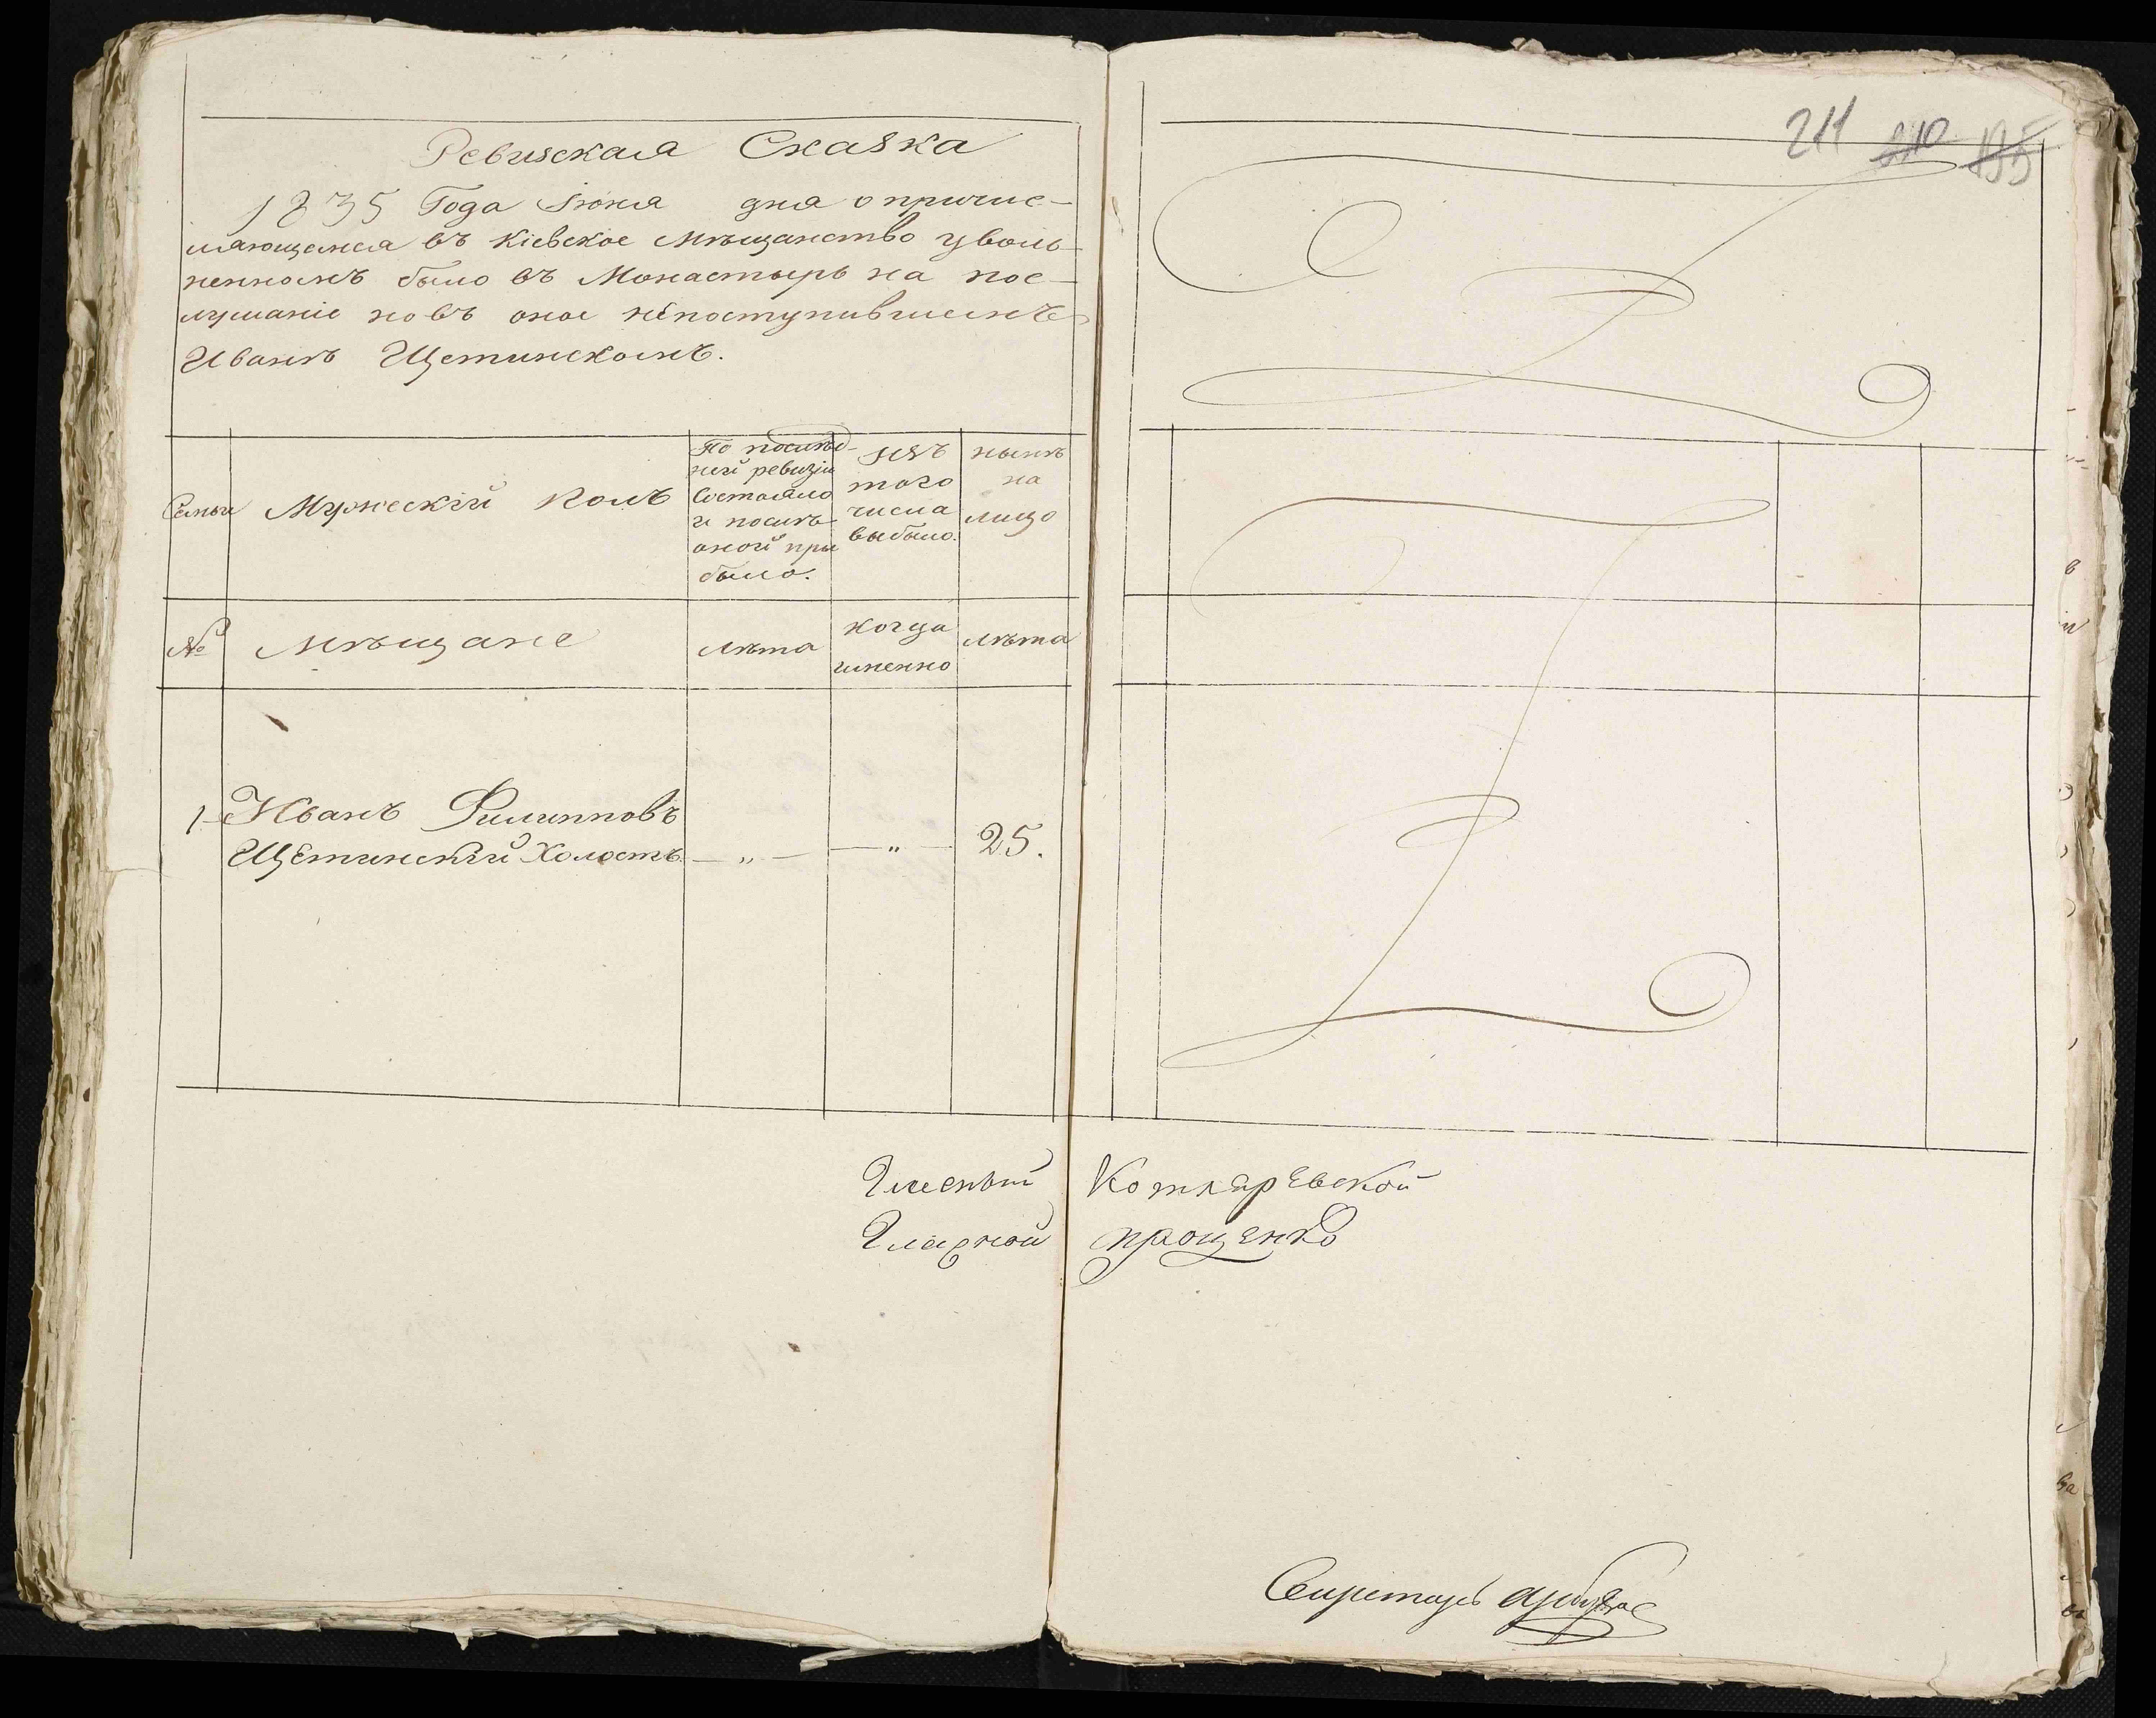 211 210 195
Ревизская Сказка
1835 Года Іюня дня о причис-
ляющемся въ Кіевское мѣщанство уволь-
ненномъ было въ Монастырь на пос-
лушаніе но въ оное непоступившемъ
Иванѣ Щетинскомъ.
Семьи
Мужескій Полъ
По послѣд-
ней ревизіи
Состояло
и послѣ
оной при
было.
изъ
того
числа
выбыло.
нынѣ
на
лицо
№
мѣщане
лѣта
когда
именно
лѣта
1 Иванъ Филипповъ
Щетинскій Холостъ — „ — — „ — 25.
Гласный Котляревской
Гласной прощенко
Секретарь